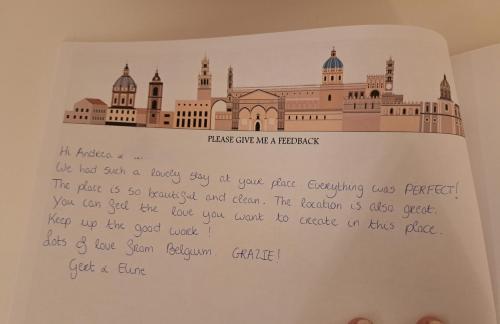 PLEASE GIVE ME A FEEDBACK
Hi Andrea & ...
We had such a lovely stay at your place. Everything was PERFECT!
The place is so beautiful and clean. The location is also great.
You can feel the love you want to create in this place.
Keep up the good work!
Lots of love from Belgium. GRAZIE!
Gert & Eline